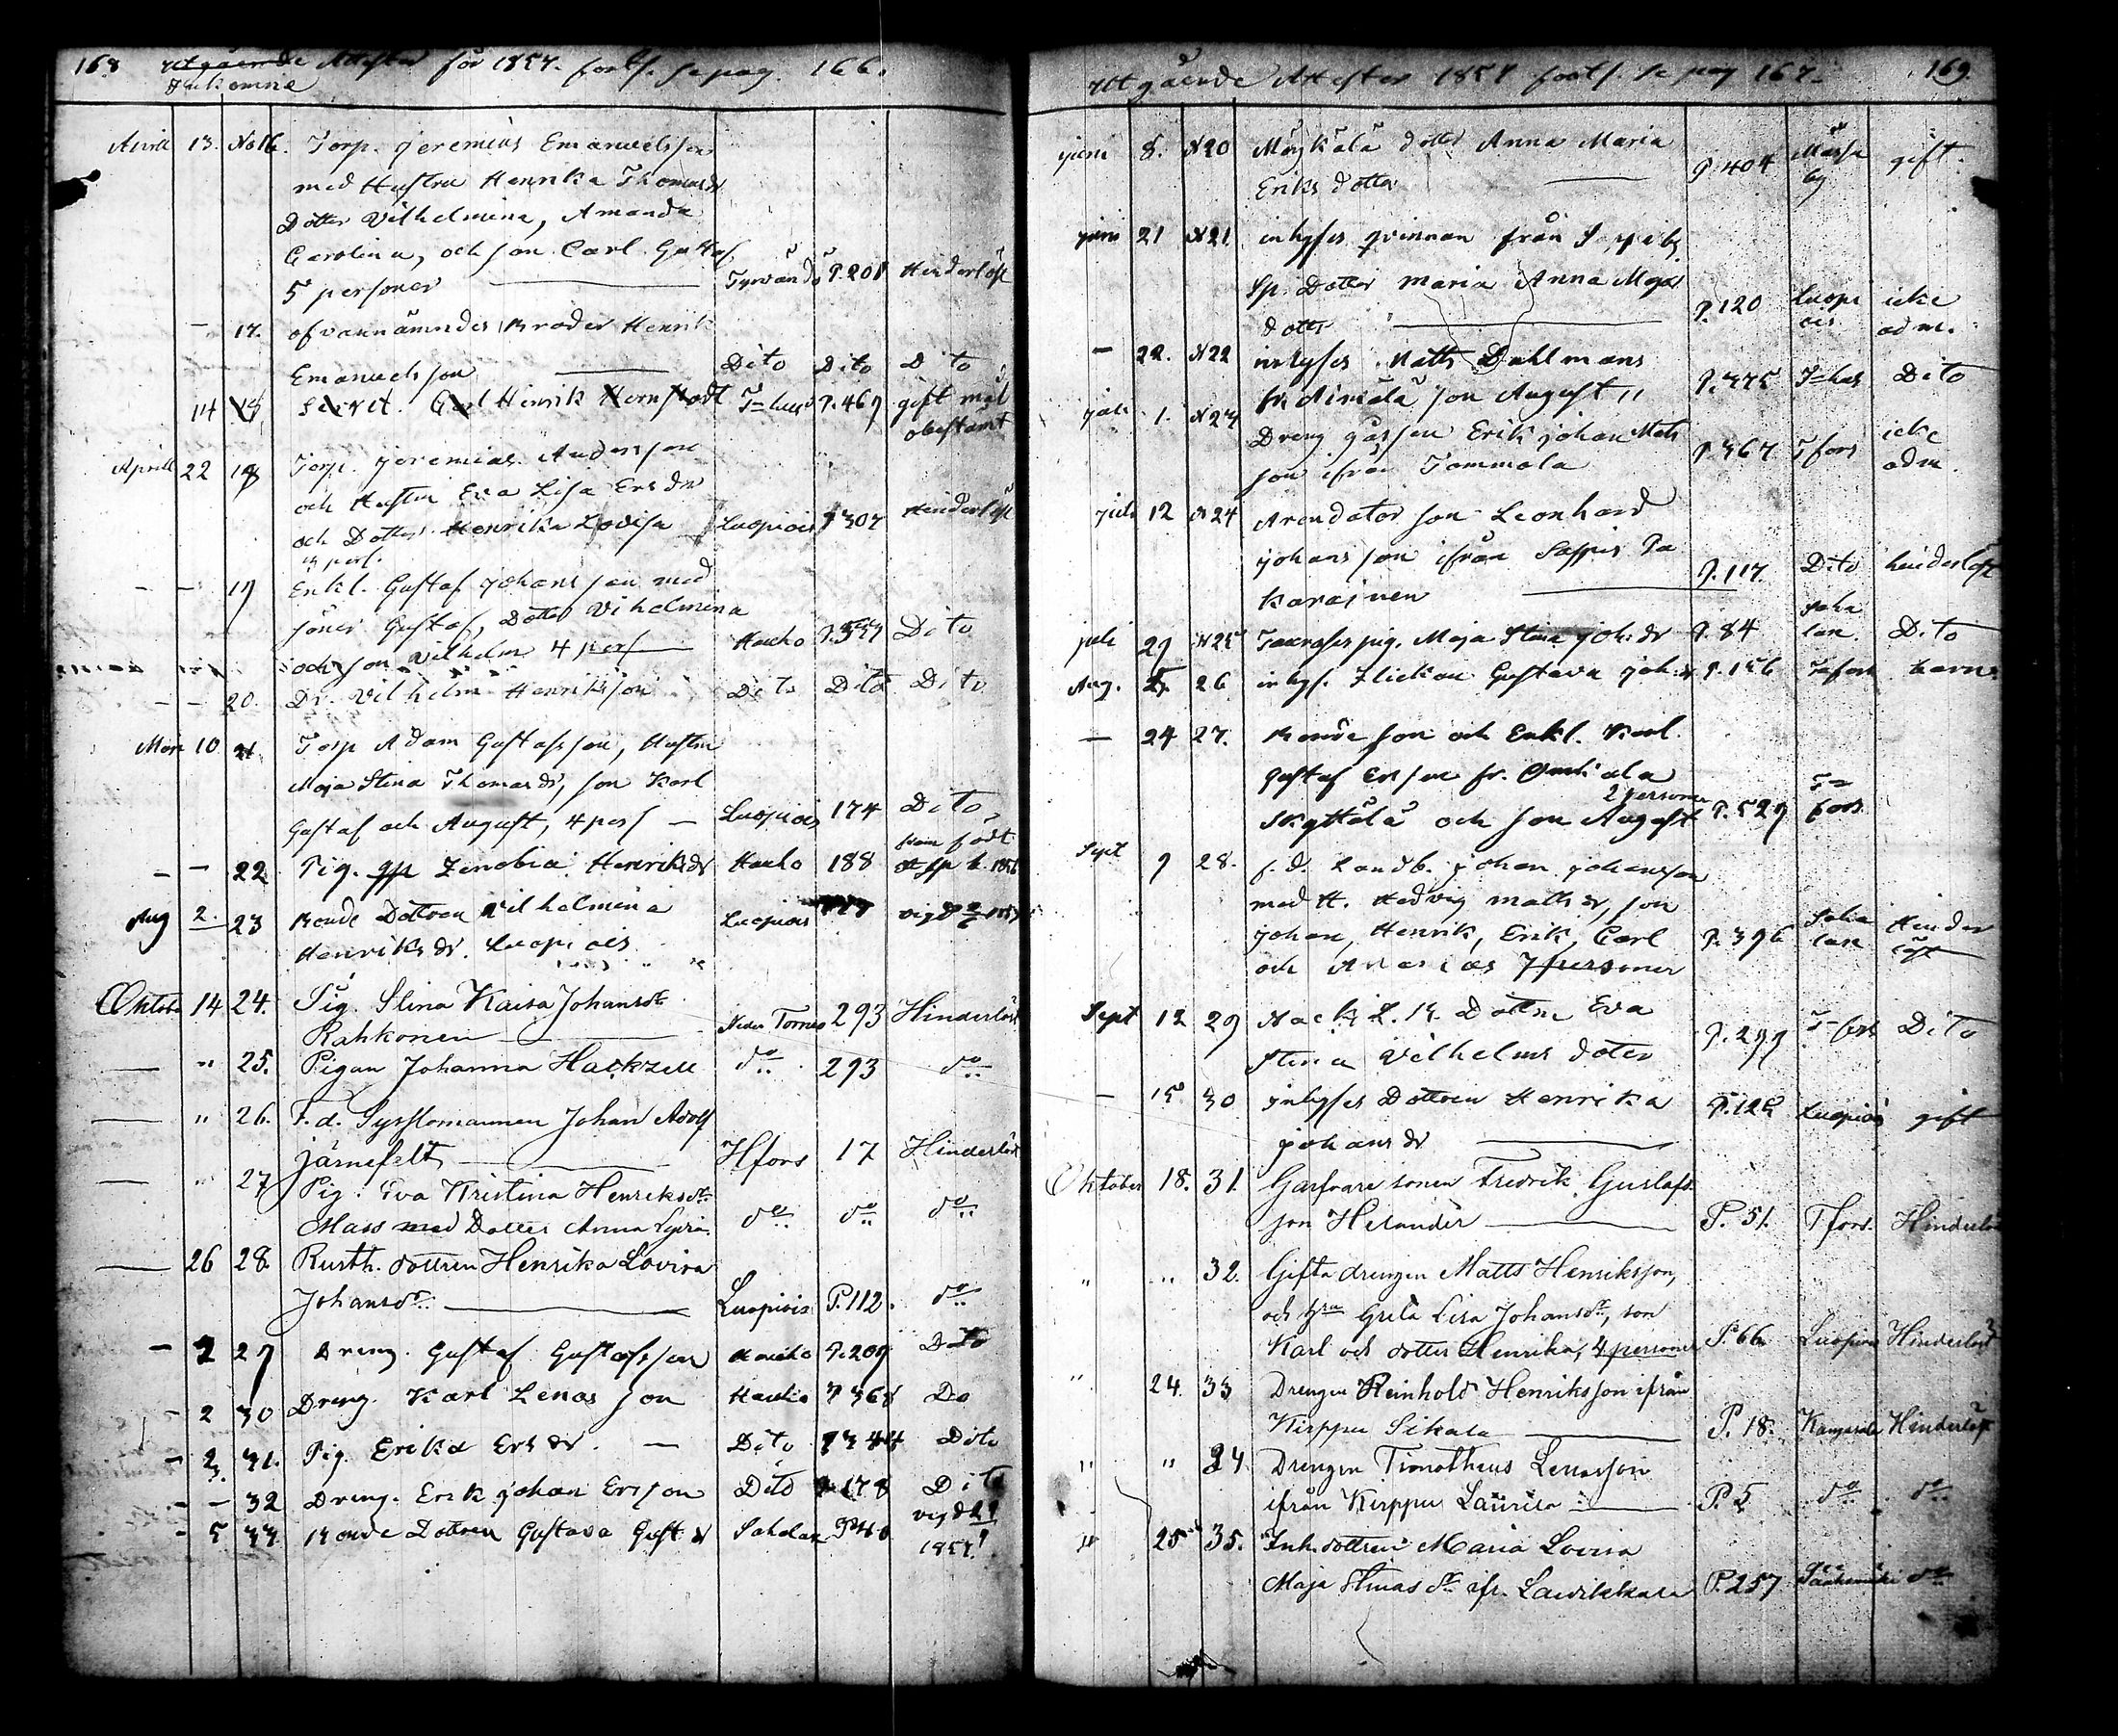 168 Utgående Attester för 1857. forts. se pag. 166.
Inkomne
Aprill 13. No 16. Torp. Jeremias Emanuelsson
med Hustru Henrika Thomasdr
Dotter Vilhelmina, Amanda
Carolina, och son Carl Gustaf
5 personer Tyrvändö P. 201 Hinderlöst
— 17. ofvannämndes Broder Henrik
Emanuelsson Dito Dito Dito
14 Henrik T=hus P. 469 gift mål
obestämt
Aprill 22 18 Torp. Jeremias Andersson
och Hustru Eva Lisa Ersdr
och Dotter Henrika Lovisa Luopiois P 307 Hinderlöst
3 pers.
— — 19 Enkl. Gustaf Johansson med
söner Gustaf, Dotter Vilhelmina
och son Vilhelm 4 pers Hauho Dito
— — 20. Dr. Vilhelm Henriksson Dito Dito Dito
10 21 Torp Adam Gustafsson, Hustru
Maja Stina Thomasdr, son Karl
Gustaf och August, 4 pers — Luopiois 174 Dito
— — 22 Pig. Zenobia Henriksdr Hauho 188
Aug 2. 23 Bonde Dottren Vilhelmina Luopiois
Henriksdr. Luopiois
Oktob. 14 24. Pig. Stina Kaisa Johansdr
Rahkonen Neder Torneo 293 Hinderlöst
— " 25. Pigan Johanna Hackzell do 293 do
— " 26. F.d. Sysslomannen Johan Adolf
Järnefelt Hfors 17 Hinderlöst
— " 27 Pig. Eva Kristina Henriksdr
Mass med Dotter Anna Lydia do do do
— 26 28. Rusth. dottren Henrika Lovisa
Johansdr. Luopiois P. 112. do
— 2 29 Dreng. Gustaf Gustafsson Hauho P. 209 Dito
— 2 30 Dreng. Karl Lenasson Hauho P 368 Do
— 2 31. Pig. Erika Ersdr. — Dito P 344 Dito
— — 32 Dreng. Erik Johan Ersson Dito P 178 Dito
— 5 33. Bonde Dottren Gustava Gust.dr Sahalax P 40 vigd
1857.
Utgående Attester 1857 forts. se pag 167. 169
juni 8. N 20 Möykälä dotter Anna Maria
Eriks dotter P 404 gift.
juni 21 N 21 inhyses qvinnan från
Sp. Dotter Maria Anna Majas
dotter P. 120 Luopiois icke
adm.
— 22. N 22 inhyses Matts Dahlmans
son August P. 375 T=hus Dito
juli 1. N 23 Dreng gossen Erik Johan Mats
son ifrån Tommola P. 367 Tfors icke
adm.
juli 12 N 24 Arendator son Leonhard
Johansson ifrån Sappis Pa
karainen P. 117. Dito hinderlöst
juli 29 N 25 pig. Maja Stina Joh.dr P. 84 Saha
lax. Dito
Aug. 26 inhys. Flickan Gustava Joh.dr P. 156 Tafors barn
— 24 27. Bonde son och Enkl. Karl
Gustaf Ersson fr.
2 personer
Skyttälä och son August P. 529 T=
fors
Sept 9 28. f.d. Landb. Johan Johansson
med H. Hedvig Mattsdr, son
Johan, Henrik, Erik, Carl P. 396 Saha
lax Hinder
löst
och Ananias 7 personer
Sept 12 29 Dottren Eva
Stina Vilhelms doter P. 299 T=fors Dito
— 15 30 inhyses Dottren Henrika P. 128 Luopiois gift
Johansdr
Oktober 18. 31. Garfvare sonen Fredrik Gustafs
son Helander P. 51. Tfors. Hinderlöst
" " 32. Gifta drengen Matts Henriksson,
och hru Greta Lisa Johansdr, son
Karl och dotter Henrika, 4 personer P. 66 Luopiois Hinderlöst
" 24. 33 Drengen Reinhold Henriksson ifrån
Kirppu Sikala P. 18. Kangasala Hinderlöst
" " 34 Drengen Timotheus Lenasson
ifrån Kirppu Laurila P. 5 do do
" 25 35. Inh. dottren Maria Lovisa
Maja Stinas dr ifr. P. 257 Sääksmäki do